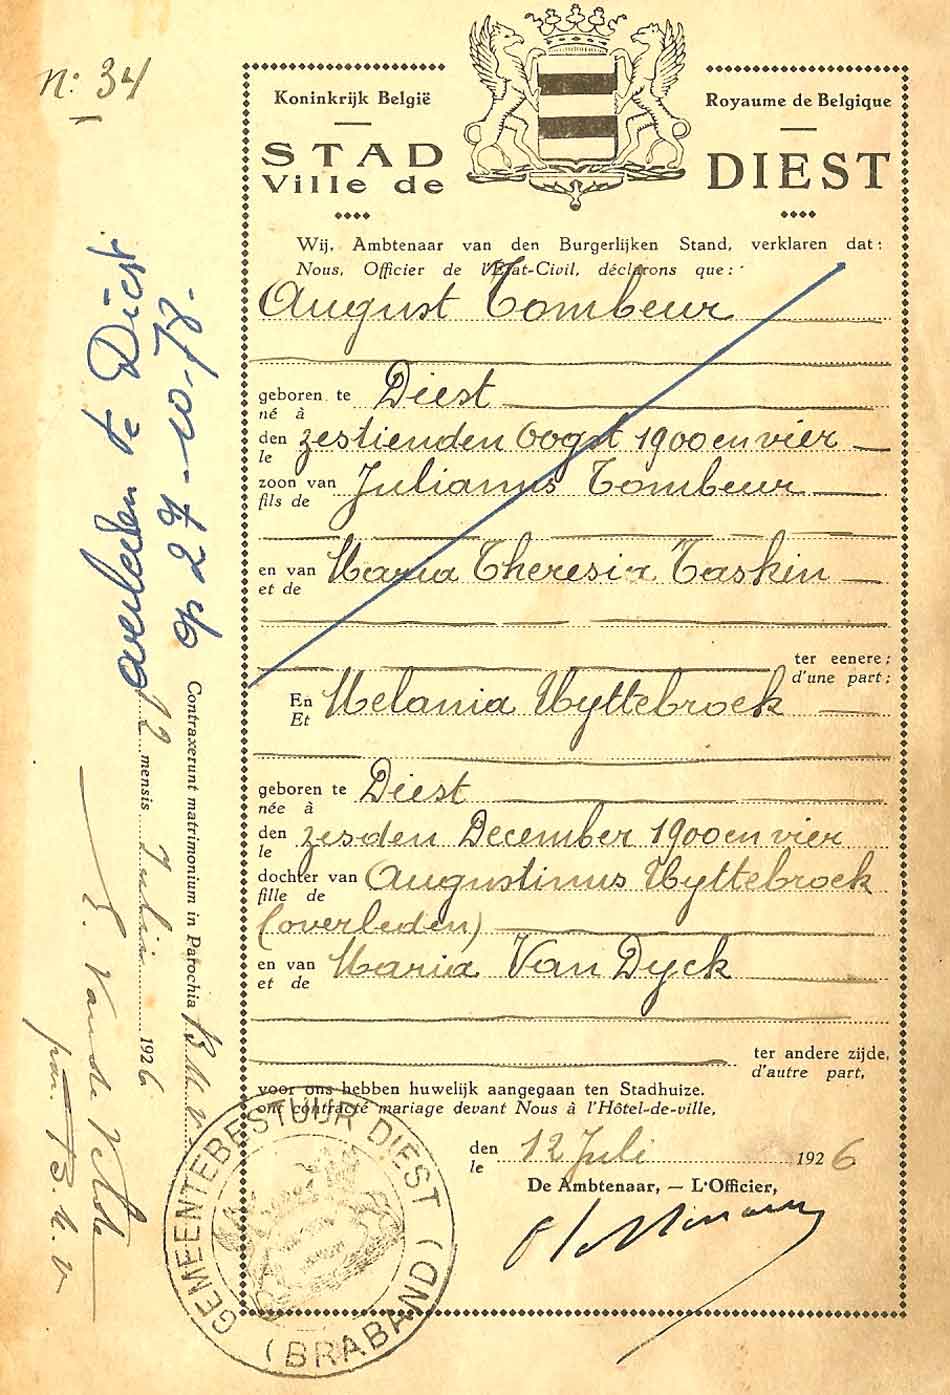 n: 34
Koninkrijk België
Royaume de Belgique
STAD
Ville de
DIEST
Wij, Ambtenaar van den Burgerlijken Stand, verklaren dat:
Nous, Officier de l'Etat-Civil, déclarons que:
August Tombeur
geboren te Diest
né à
den zestienden Oogst 1900 en vier
le
zoon van Julianus Tombeur
fils de
en van Maria Theresia Taskin
et de
ter eenere;
d'une part;
En Melania Uyttebroek
Et
geboren te Diest
née à
den zesden December 1900 en vier
le
dochter van Augustinus Uyttebroek
fille de
(overleden)
en van Maria Van Dyck
et de
ter andere zijde,
d'autre part,
voor ons hebben huwelijk aangegaan ten Stadhuize.
ont contracté mariage devant Nous à l'Hôtel-de-ville,
den 12 Juli 1926
le
De Ambtenaar, — L'Officier,
GEMEENTEBESTUUR DIEST
(BRABAND)
overleden te Diest
op 27-10-78.
Contraxerunt matrimonium in Parochia B. M. V.
12 mensis Julii 1926
Vande Velde
B. M. V.